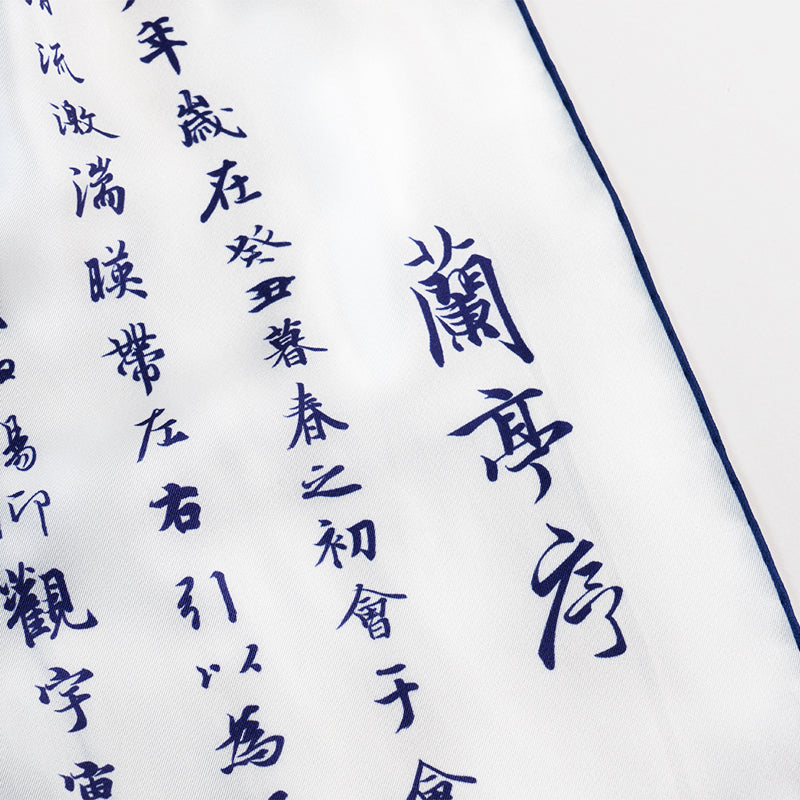 蘭亭序
年歲在癸丑暮春之初會于會
清流激湍暎帶左右引以為
仰觀宇宙